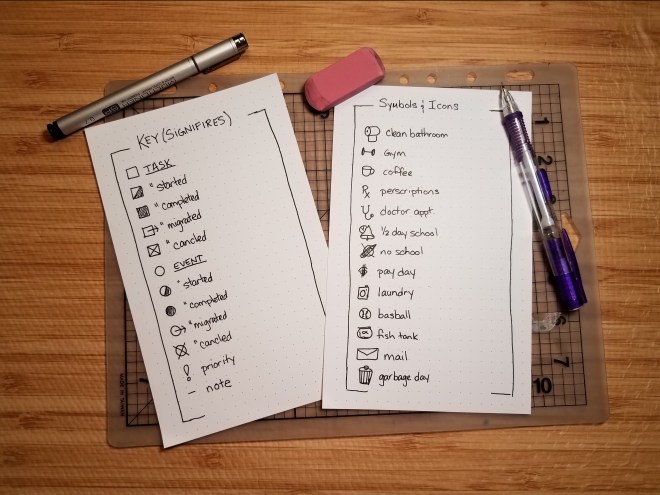 KEY (SIGNIFIRES)
TASK
" started
" completed
" migrated
" cancled
EVENT
" started
" completed
" migrated
" cancled
! priority
– note
Symbols & Icons
clean bathroom
Gym
coffee
℞ perscriptions
doctor appt.
½ day school
no school
pay day
laundry
basball
fish tank
mail
garbage day
1
2
6
7
10